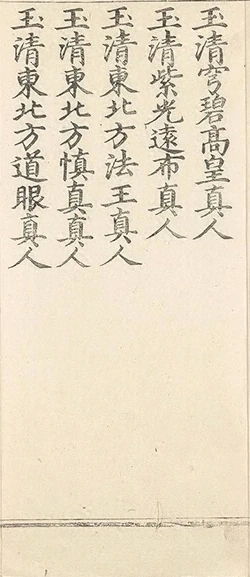 玉清穹碧高皇真人
玉清紫光遠布真人
玉清東北方法王真人
玉清東北方慎真真人
玉清東北方道眼真人